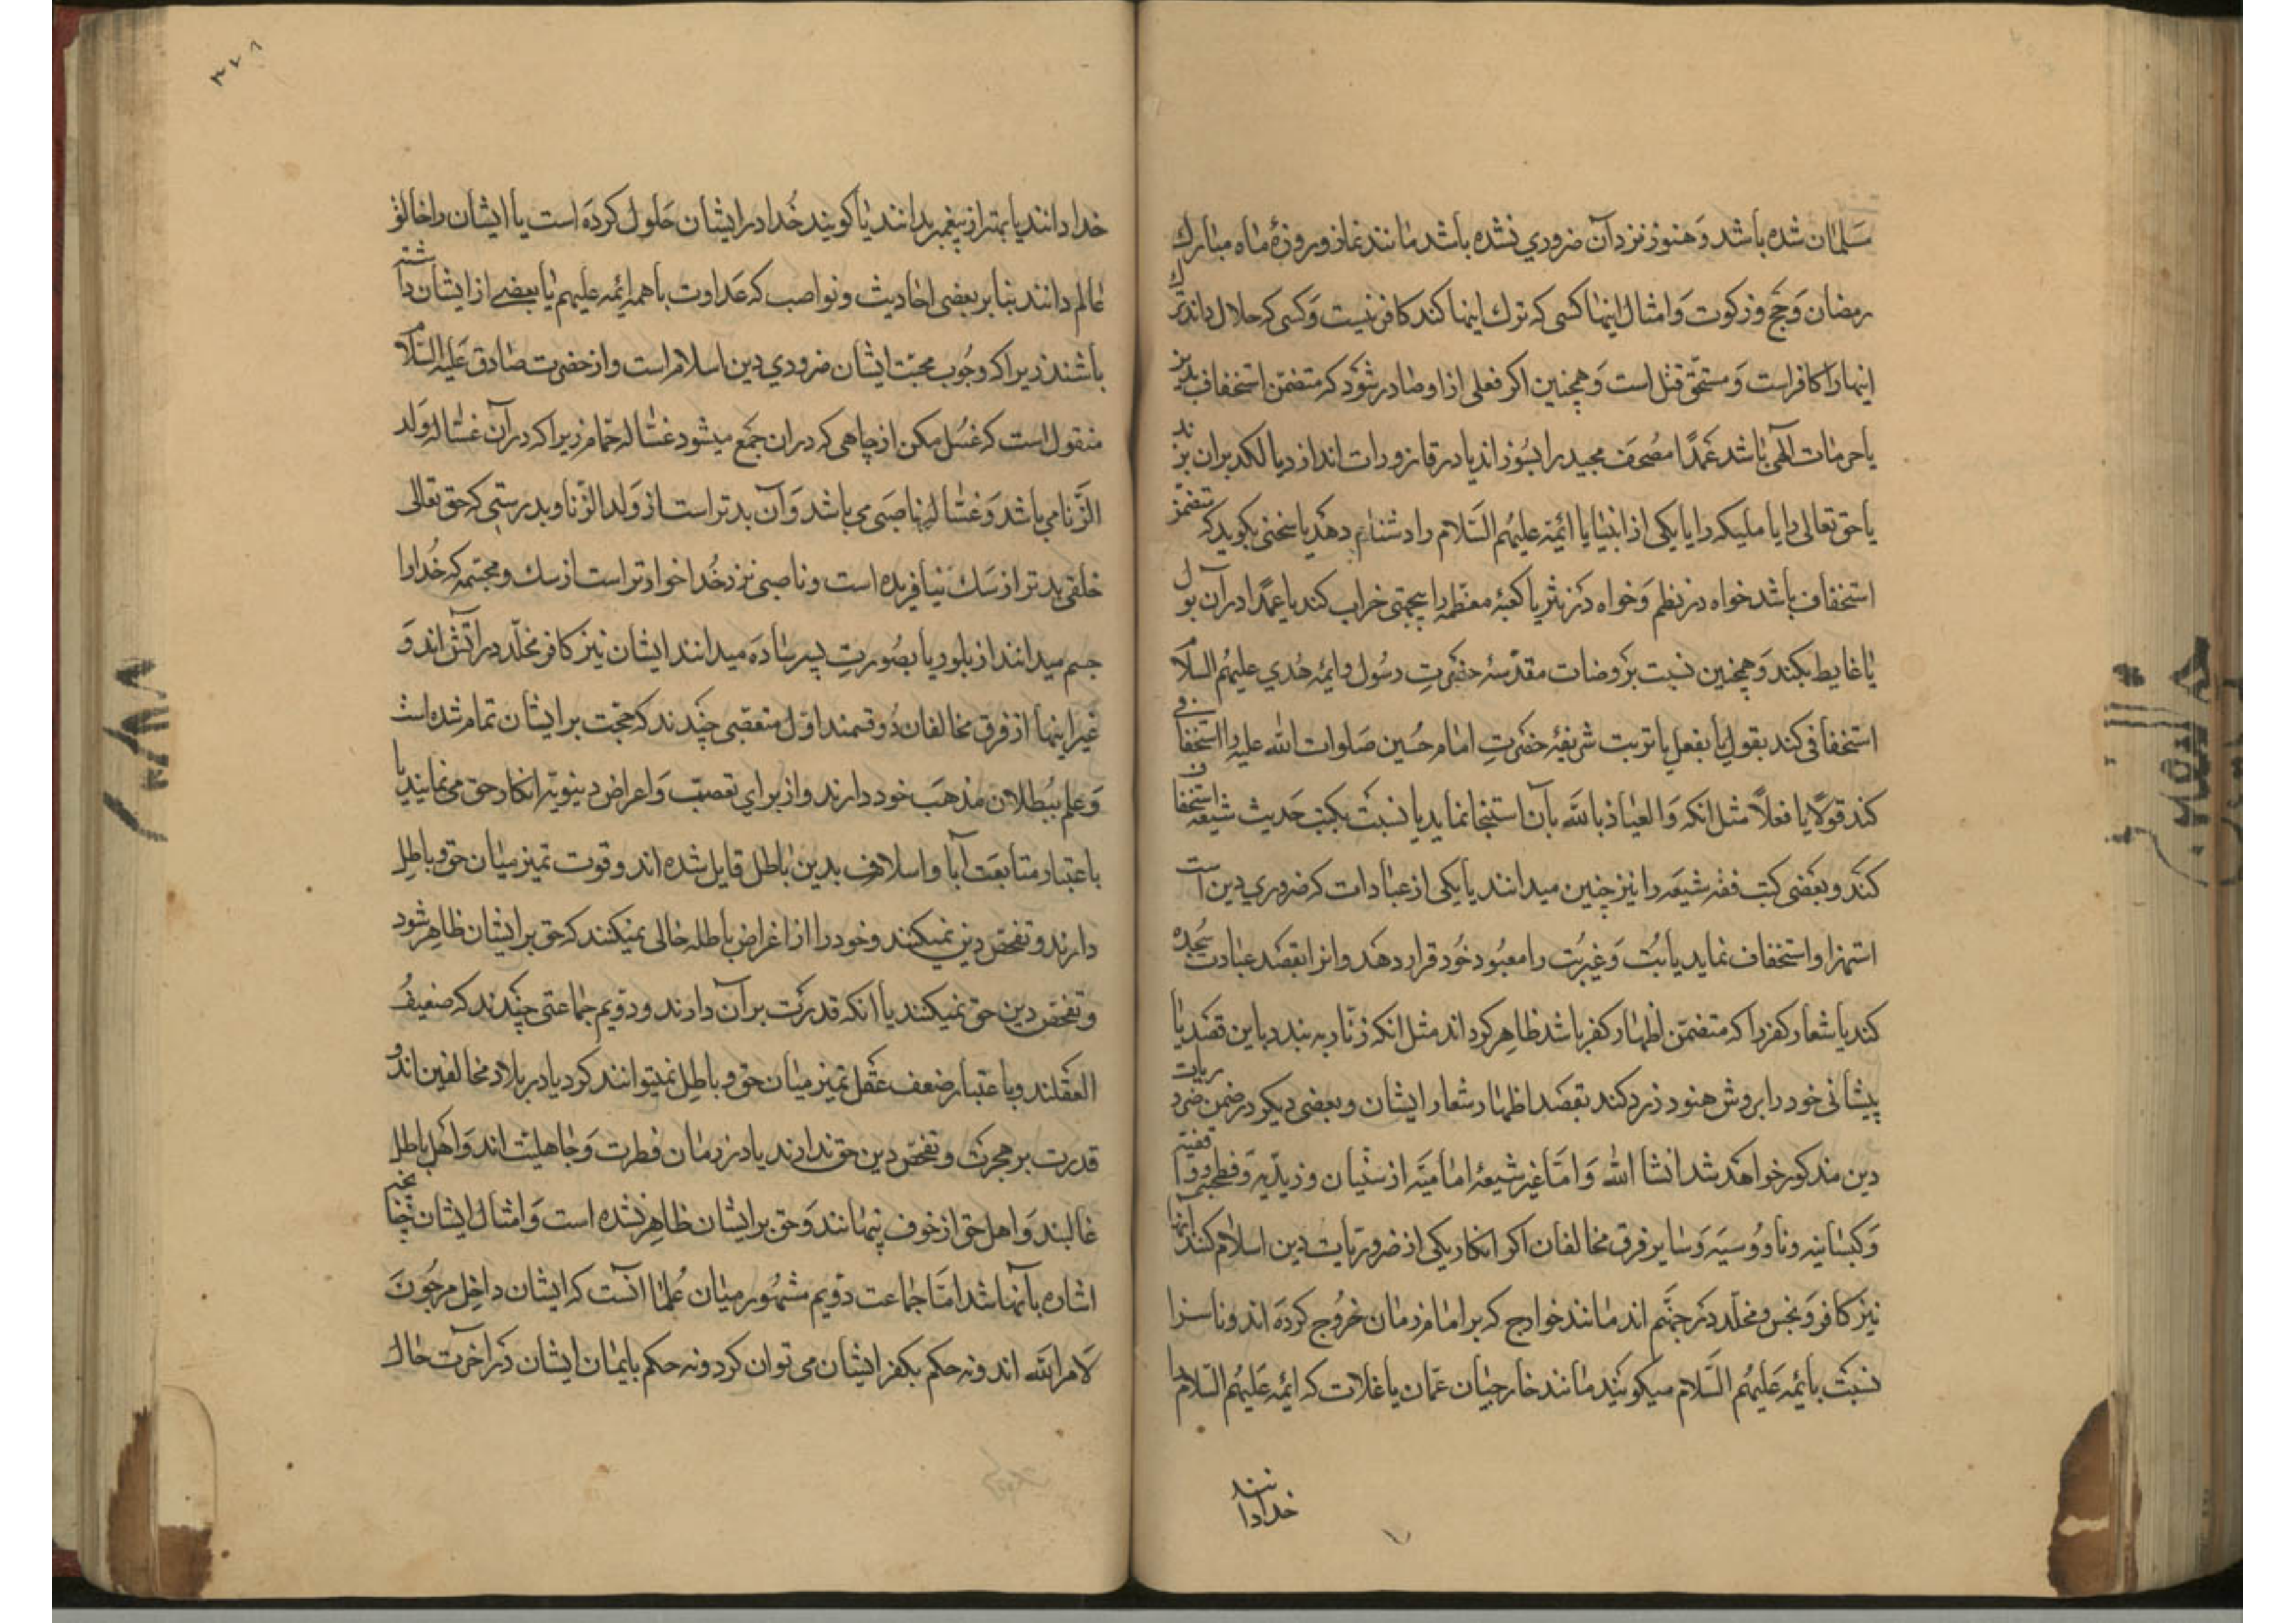 مسلمان شده باشد و هنوز نزد آن ضروري نشده باشد مانند نماز و روزهٔ ماه مبارك
رمضان و حج و زكوت و امثال اینها كسی كه ترك اینها كند كافر نیست و كسی كه حلال داند ترك
اینها را كافر است و مستحق قتل است و همچنین اكر فعلی از او صادر شود كه متضمن استخفاف بدین
یا حرمات الهی باشد عمدًا مصحف مجید را بسوزاند یا در قاذورات اندازد یا لكد بران بزند
یا حق تعالی را یا ملیكه را یا یكی از انبیا یا ائمه علیهم السلام را دشنام دهد یا سخنی بكوید كه متضمن
استخفاف باشد خواه در نظم و خواه در نثر یا كعبهٔ معظمه را بیجهتی خراب كند یا عمدًا در آن بول
یا غایط بكند و همچنین نسبت بروضات مقدسهٔ حضرت رسول و ایمه هدي علیهم السلام
استخفافی كند بقول یا بفعل یا تربت شریفهٔ حضرت امام حسین صلوات الله علیه را استخفافی
كند قولًا یا فعلًا مثل انكه و العیاذ بالله بآن استنجا نماید یا نسبت بكتب حدیث شیعه استخفاف
كند و بعضی كتب فقه شیعه را نیز چنین میدانند یا یكی از عبادات كه ضروري دین است
استهزا و استخفاف نماید یا بت و غیر بت را معبود خود قرار دهد و انرا بقصد عبادت سجده
كند یا شعار كفر را كه متضمن اظهار كفر باشد ظاهر كرداند مثل انكه زنّار به بندد باین قصد یا
پیشانی خود را بروش هنود زرد كند بقصد اظهار شعار ایشان و بعضی دیكر در ضمن ضروریات
دین مذكور خواهد شد انشا الله و امّا غیر شیعهٔ امامیّه از سنّیان و زیدیّه و فطحیّه و واقفیّه
و كیسانیه و ناووسیه و سایر فرق مخالفان اكر انكار یكی از ضروریات دین اسلام كنند انها
نیز كافر و نجس و مخلّد در جهنّم اند مانند خوارج كه بر امام زمان خروج كرده اند و ناسزا
نسبت بائمه علیهم السّلام میكویند مانند خارجیان عمان یا غلات كه ائمه علیهم السّلام را
خدا دانند
۳۷۸
خدا دانند یا بهتر از پیغمبر بدانند یا كویند خدا در ایشان حلول كرده است یا ایشان را خالق
عالم دانند بنا بر بعضی احادیث و نواصب كه عداوت با همه ائمه علیهم یا بعضی از ایشان داشته
باشند زیرا كه وجوب محبّت ایشان ضروري دین اسلام است و از حضرت صادق علیه السّلام
منقول است كه غسل مكن از چاهی كه دران جمع میشود غساله حمّام زیرا كه در آن غساله ولد
الزّنا می باشد و غساله ناصبی می باشد و آن بدتر است از ولد الزّنا و بدرستی كه حق تعالی
خلقی بدتر از سك نیافریده است و ناصبی نزد خدا خوارتر است از سك و مجسّمه كه خدا را
جسم میدانند از بلور یا بصورت پسر ساده میدانند ایشان نیز كافر و مخلّد در آتش اند و
غیر اینها از فرق مخالفان دو قسمند اوّل متعصّبی چندند كه حجّت بر ایشان تمام شده است
و علم ببطلان مذهب خود دارند و از براي تعصّب و اعراض دنیویّه انكار حق می نمایند یا
باعتبار متابعت آبا و اسلاف بدین باطل قایل شده اند و قوت تمیز میان حق و باطل
دارند و تفحص دین نمیكنند و خود را از اغراض باطله خالی نمیكنند كه حق بر ایشان ظاهر شود
و تفحّص دین حق نمیكنند یا انكه قدرت بر آن دارند و دویم جماعتی چندند كه ضعیف
العقلند و باعتبار ضعف عقل تمیز میان حق و باطل نمیتوانند كرد یا در بلاد مخالفین اند و
قدرت بر هجرت و تفحّص دین حق ندارند یا در زمان فطرت و جاهلیّت اند و اهل باطل
غالبند و اهل حق از خوف پنهانند و حق بر ایشان ظاهر نشده است و امثال ایشان چنانچه
اشاره بآنها شد امّا جماعت دویم مشهور میان علما انست كه ایشان داخل مرجون
لامر الله اند و نه حكم بكفر ایشان می توان كرد و نه حكم بایمان ایشان در آخرت حال